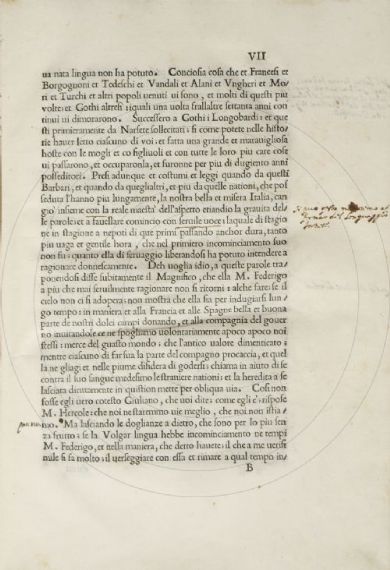 VII
ua nata lingua non ha potuto. Conciosa cosa che et Francesi et
Borgognoni et Tedeschi et Vandali et Alani et Vngheri et Mo/
ri et Turchi et altri popoli uenuti ui sono, et molti di questi piu
uolte: et Gothi altresi: iquali una uolta frallaltre settanta anni con
tinui ui dimorarono. Successero a Gothi i Longobardi: et que
sti primieramente da Narsete sollecitati; si come potete nelle histo/
rie hauer letto ciascuno di uoi; et fatta una grande et marauigliosa
hoste con le mogli et co figliuoli et con tutte le loro piu care cose
ui passarono, et occuparonla, et furonne per piu di dugento anni
posseditori. Presi adunque et costumi et leggi quando da questi
Barbari, et quando da queglialtri, et piu da quelle nationi, che pos
seduta l'hanno piu lungamente, la nostra bella et misera Italia, can
gio insieme con la reale maesta dell'aspetto etiandio la grauita del/
le parole: et a fauellare comincio con seruile uoce: laquale di stagio
ne in stagione a nepoti di que primi passando anchor dura, tanto
piu uaga et gentile hora, che nel primiero incominciamento suo
non fu: quanto ella di seruaggio liberandosi ha potuto intendere a
ragionare donnescamente. Deh uoglia idio, a quelle parole tra/
ponendosi disse subitamente il Magnifico, che ella M. Federigo
a piu che mai seruilmente ragionare non si ritorni: alche fare se il
cielo non ci si adopera; non mostra che ella sia per indugiarsi lun/
go tempo: in maniera et alla Francia et alle Spagne bella et buona
parte de nostri dolci campi donando, et alla compagnia del gouer
no inuitandole ce ne spogliamo uolontariamente apoco apoco noi
stessi: merce del guasto mondo; che l'antico ualore dimenticato;
mentre ciascuno di far sua la parte del compagno procaccia, et quel
la ne gliagi et nelle piume disidera di godersi; chiama in aiuto di se
contra il suo sangue medesimo le straniere nationi; et la heredita a se
lasciata dirittamente in quistion mette per obliqua uia. Cosi non
fosse egli uero cotesto Giuliano, che uoi dite; come egli e'; rispose
M. Hercole: che noi ne staremmo uie meglio, che noi non istia/
mo. Ma lasciando le doglianze a dietro, che sono per lo piu sen
za frutto; se la Volgar lingua hebbe incominciamento ne tempi
M. Federigo, et nella maniera, che detto hauete; il che a me ueri si
mile si fa molto; il uerseggiare con essa et rimare a qual tempo in/
B